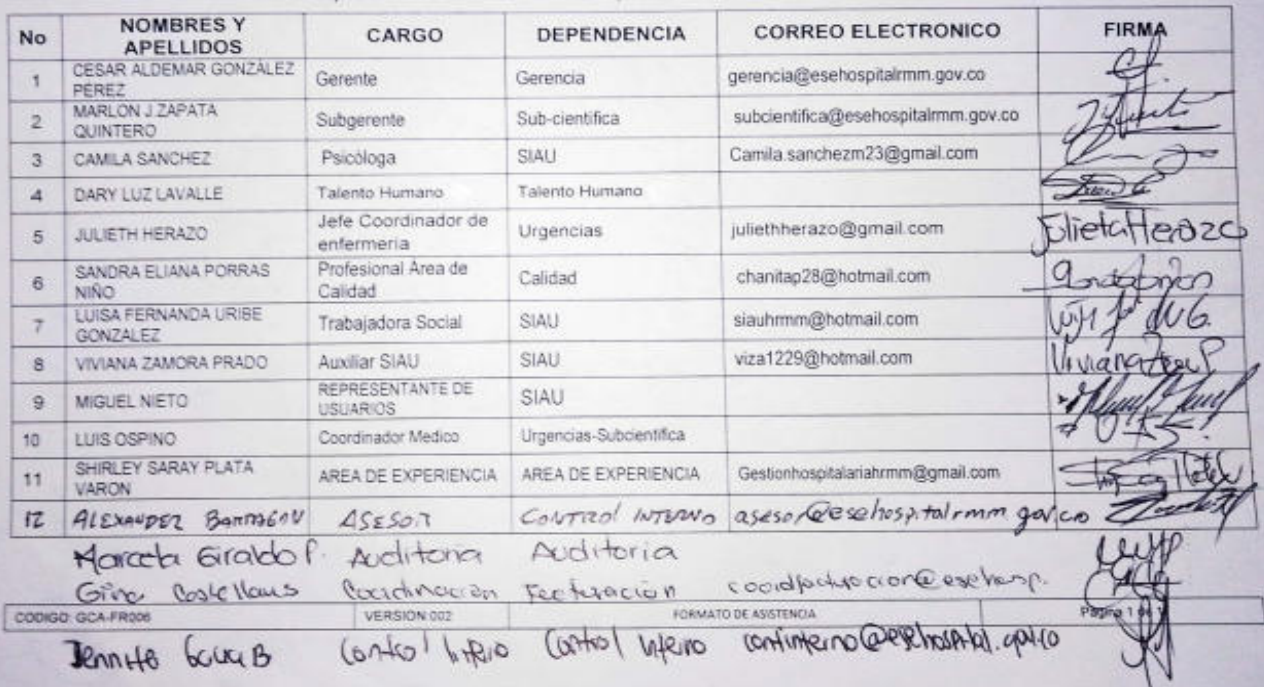 No NOMBRES Y APELLIDOS CARGO DEPENDENCIA CORREO ELECTRONICO FIRMA
1 CESAR ALDEMAR GONZÁLEZ PÉREZ Gerente Gerencia gerencia@esehospitalrmm.gov.co
2 MARLON J ZAPATA QUINTERO Subgerente Sub-cientifica subcientifica@esehospitalrmm.gov.co
3 CAMILA SANCHEZ Psicóloga SIAU Camila.sanchezm23@gmail.com
4 DARY LUZ LAVALLE Talento Humano Talento Humano
5 JULIETH HERAZO Jefe Coordinador de enfermeria Urgencias juliethherazo@gmail.com Julieta Herazo
6 SANDRA ELIANA PORRAS NIÑO Profesional Area de Calidad Calidad chanitap28@hotmail.com
7 LUISA FERNANDA URIBE GONZALEZ Trabajadora Social SIAU siauhrmm@hotmail.com
8 VIVIANA ZAMORA PRADO Auxiliar SIAU SIAU viza1229@hotmail.com Viviana
9 MIGUEL NIETO REPRESENTANTE DE USUARIOS SIAU
10 LUIS OSPINO Coordinador Medico Urgencias-Subcientifica
11 SHIRLEY SARAY PLATA VARON AREA DE EXPERIENCIA AREA DE EXPERIENCIA Gestionhospitalariahrmm@gmail.com
12 ALEXANDER BARRAGAN ASESOR CONTROL INTERNO asesor@esehospitalrmm.gov.co
Marcela Giraldo P. Auditoria Auditoria
Gina Castellanos Coordinación Facturación
CODIGO: GCA-FR006 VERSION:002 FORMATO DE ASISTENCIA Pagina 1 de 1
Control Interno Control Interno continterno@esehospital.gov.co